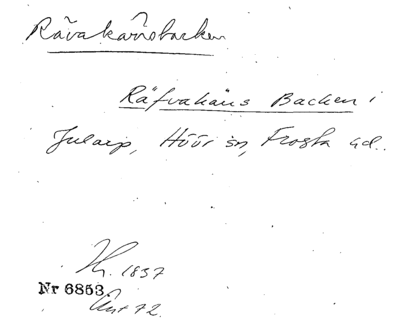 Rävakärrsbacken
Räfvahäus Backen i
Jularp, Höör sn, Frosta hd.
H. 1837
Nr 6853.
Avr 72.